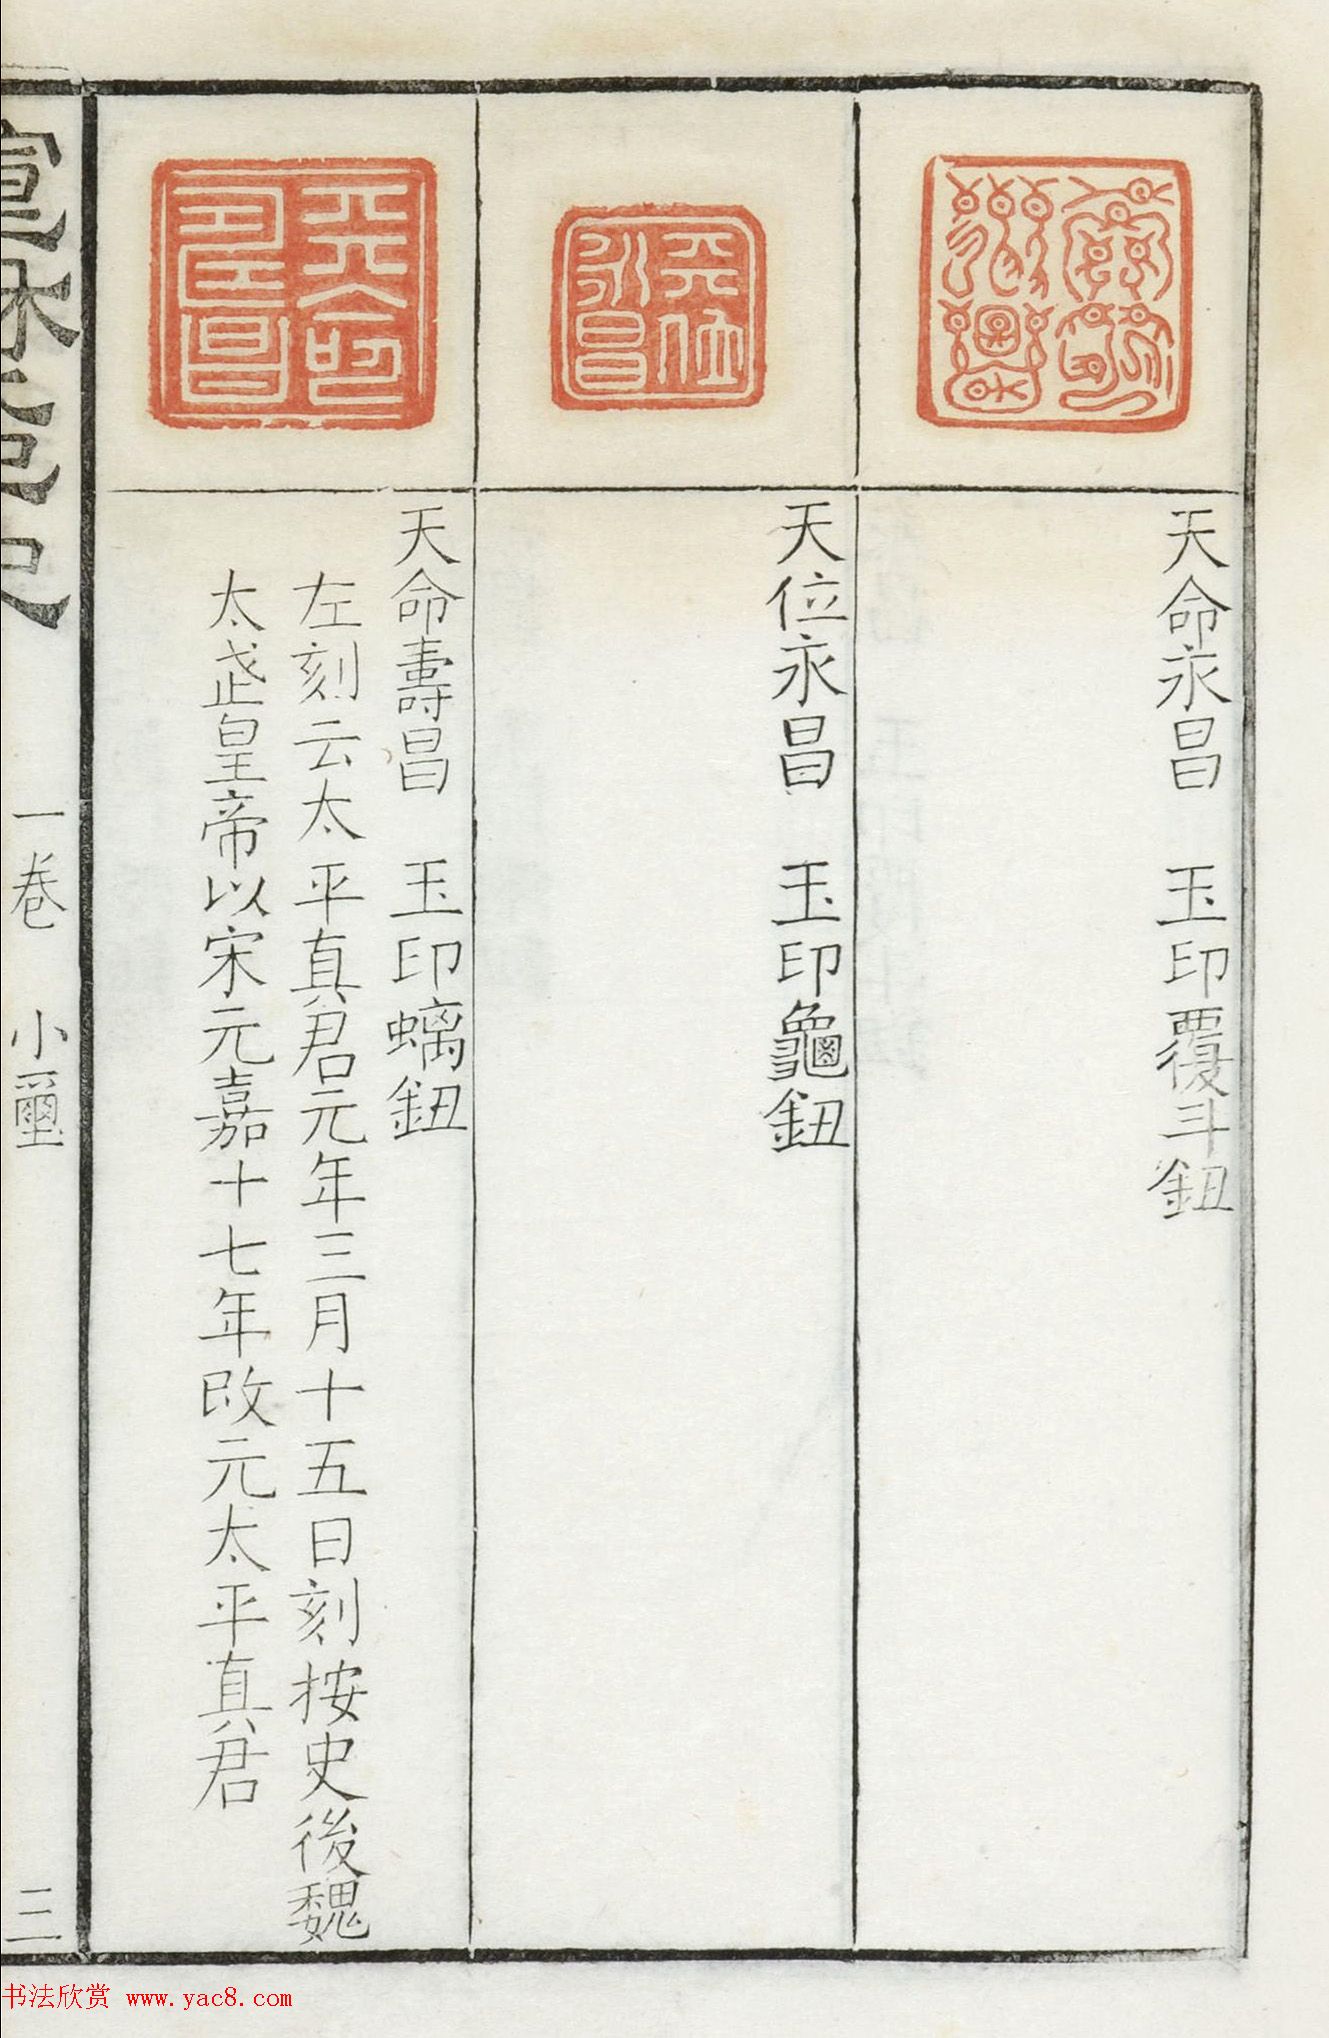 天命永昌　玉印覆斗鈕
天位永昌　玉印龜鈕
天命壽昌　玉印螭鈕
左刻云太平真君元年三月十五日刻按史後魏
太武皇帝以宋元嘉十七年改元太平真君
宣和
一卷　小璽
三
书法欣赏 www.yac8.com